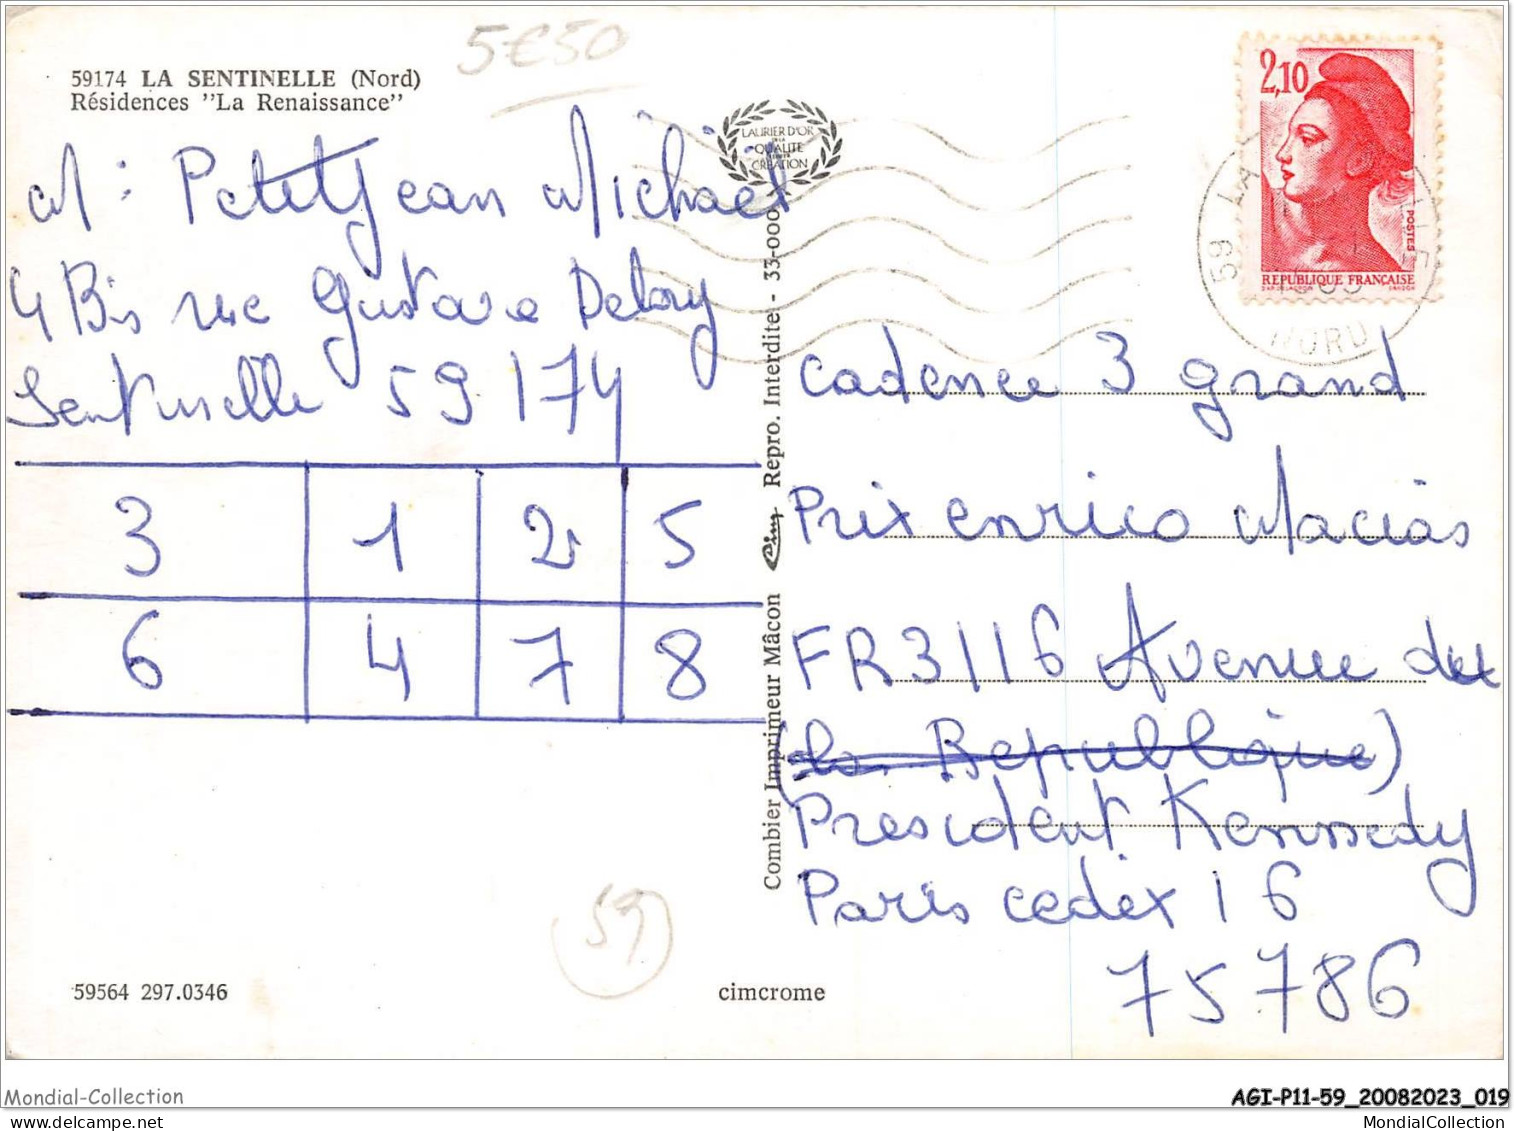 5€50
59174 LA SENTINELLE (Nord)
Résidences "La Renaissance"
M : Petitjean Michael
4 Bis rue Gustave Delory
Sentinelle 59174
3 1 2 5
6 4 7 8
59
59564 297.0346
cimcrome
Combier Imprimeur Mâcon Repro. Interdite - 33-000
LAURIER D'OR
DE LA
QUALITÉ
CRÉATION
2,10
POSTES
RÉPUBLIQUE FRANÇAISE
59 LA
NORD
Cadence 3 grand
Prix enrico Macias
FR3 116 Avenue du
(la Republique)
President Kennedy
Paris cedex 16
75786
Mondial-Collection
AGI-P11-59_20082023_019
MondialCollection